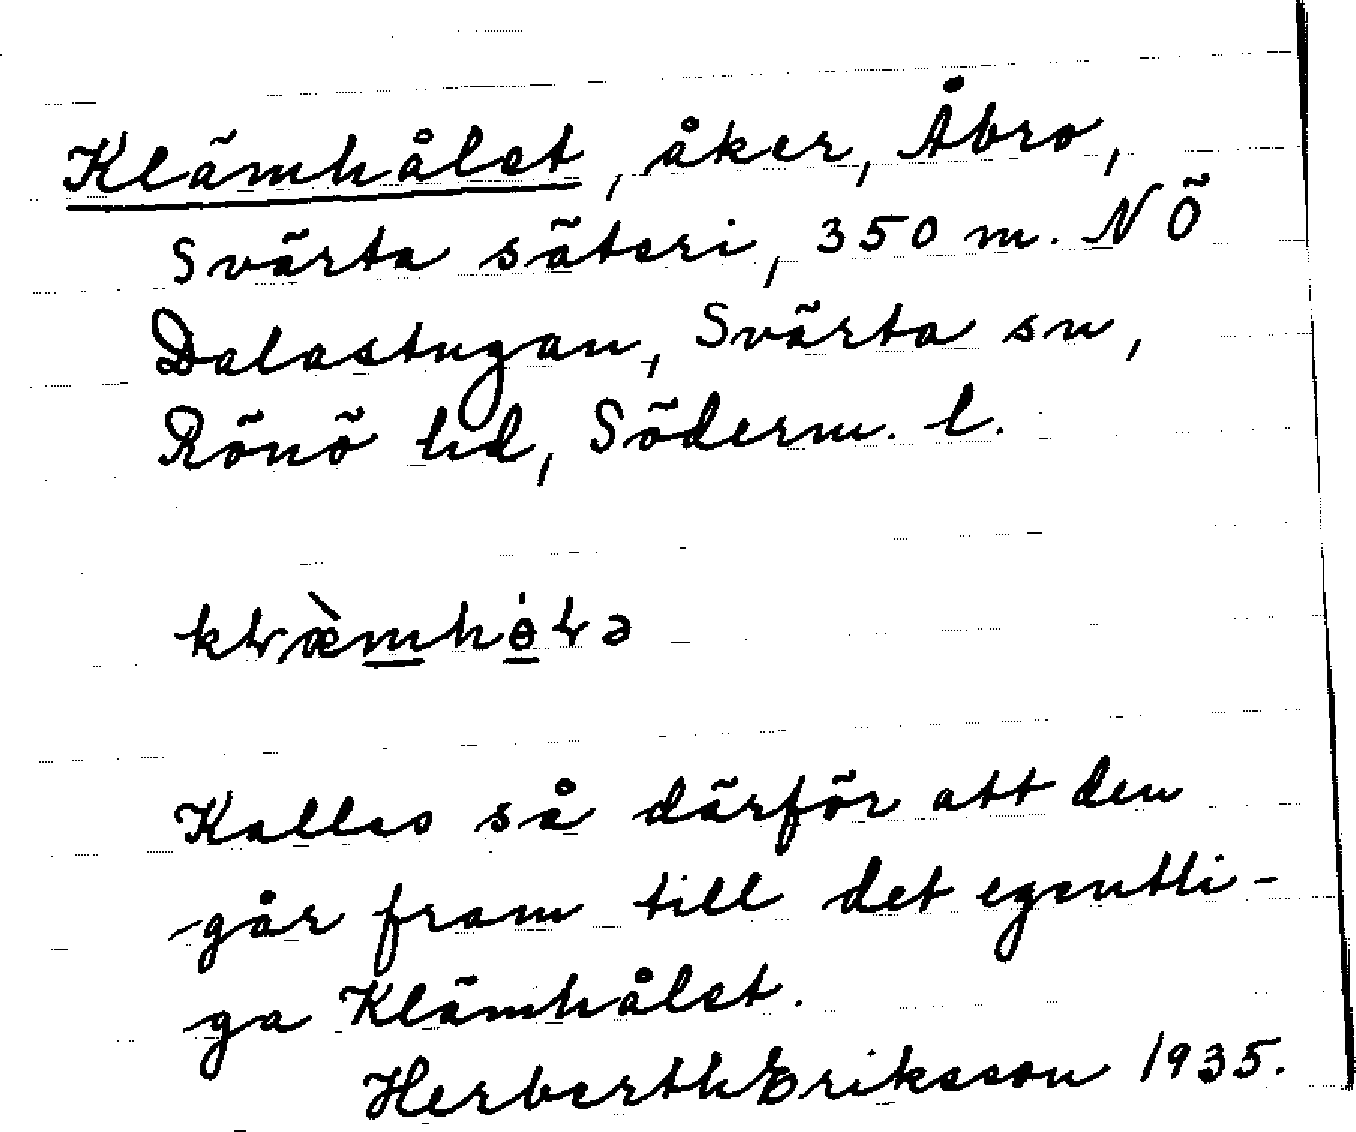 Klämhålet, åker, Åbro,
Svärta säteri, 350 m. NÖ
Dalastugan, Svärta sn,
Rönö hd, Söderm. l.
Kallas så därför att den
går fram till det egentli-
ga Klämhålet.
Herberth Eriksson 1935.